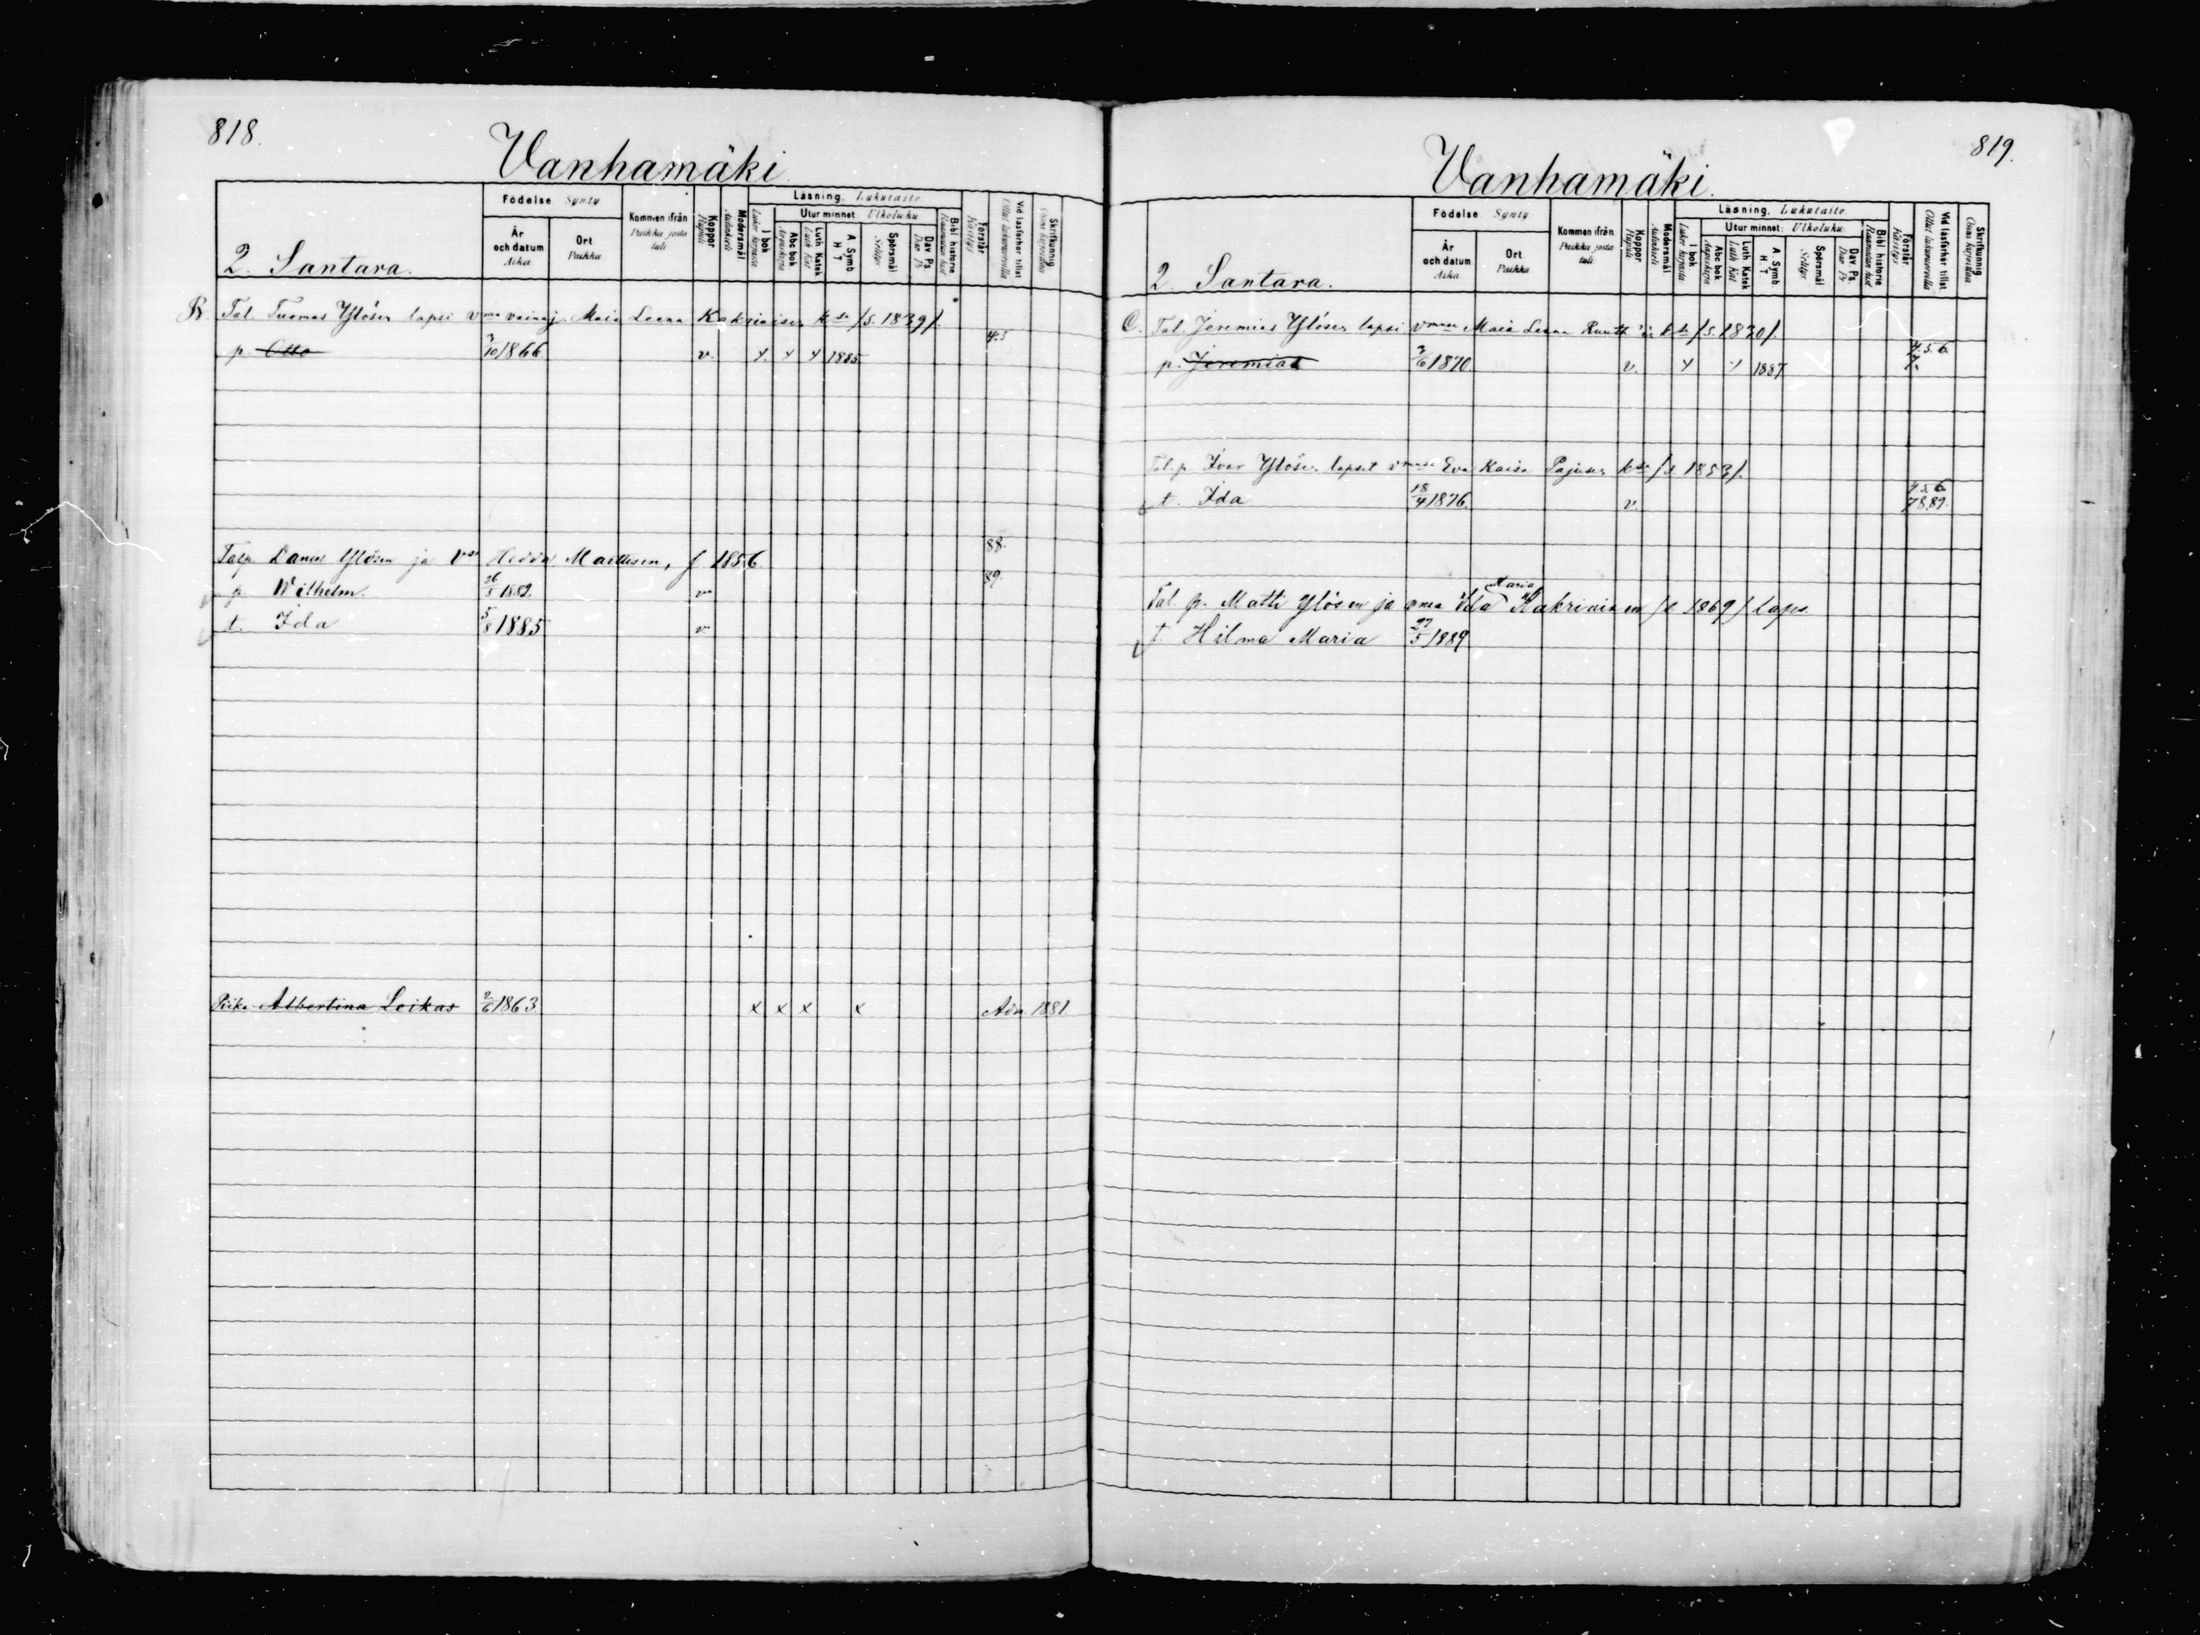 818.
Vanhamäki
2. Santara.
Födelse Synty
År och datum Aika
Ort Paikka
Kommen ifrån Paikka josta tuli
Koppor Rupuli
Modersmål Äidinkieli
Läsning. Lukutaito.
I bok
Utur minnet: Ulkoluku
Abc bok
Luth. Katek
A. Symb. H T
Spörsmål
Dav. Ps.
Bibl. historie
Förstår Käsitys
Vid läsförhör tillst.
Skrifkunnig
B. Tal. Tuomas Ylösen lapsi vmo vainaj. Maia Leena Kakriaisen k sa /s. 1839/.
p. Otto 3/10 1866. v. 1885. 4.5
88.
Talp. Daniel Ylösen ja vso Hedda Martiisen, f 1856
p. Wilhelm. 26/5 1882. v. 89.
t. Ida 5/8 1885 v.
Piika Albertina Leikas 2/6 1863 x x x x Adm. 1881
819.
Vanhamäki.
2. Santara.
Födelse Synty
År och datum Aika
Ort Paikka
Kommen ifrån Paikka josta tuli
Koppor Rupuli
Modersmål Äidinkieli
Läsning. Lukutaito.
I bok
Utur minnet: Ulkoluku
Abc bok
Luth. Katek
A. Symb. H T
Spörsmål
Dav. Ps.
Bibl. historie
Förstår Käsitys
Vid läsförhör tillst.
Skrifkunnig
C. Tal. Jeremias Ylösen lapsi Maia Leena k sa /s. 1830/.
p. Jeremias 3/6 1870. v. 1887 4.5.6. 7.
Tal. p. Ivar Ylösen lapset Eva Kaisa Pajusen k sa /s. 1853/.
t. Ida 18/4 1876. v. 4.5.6. 7.8.89.
Maria
Tal. p. Matti Ylösen ja vmo Ida Kakriaisen /s. 1869/ laps.
t. Hilma Maria 27/5 1889